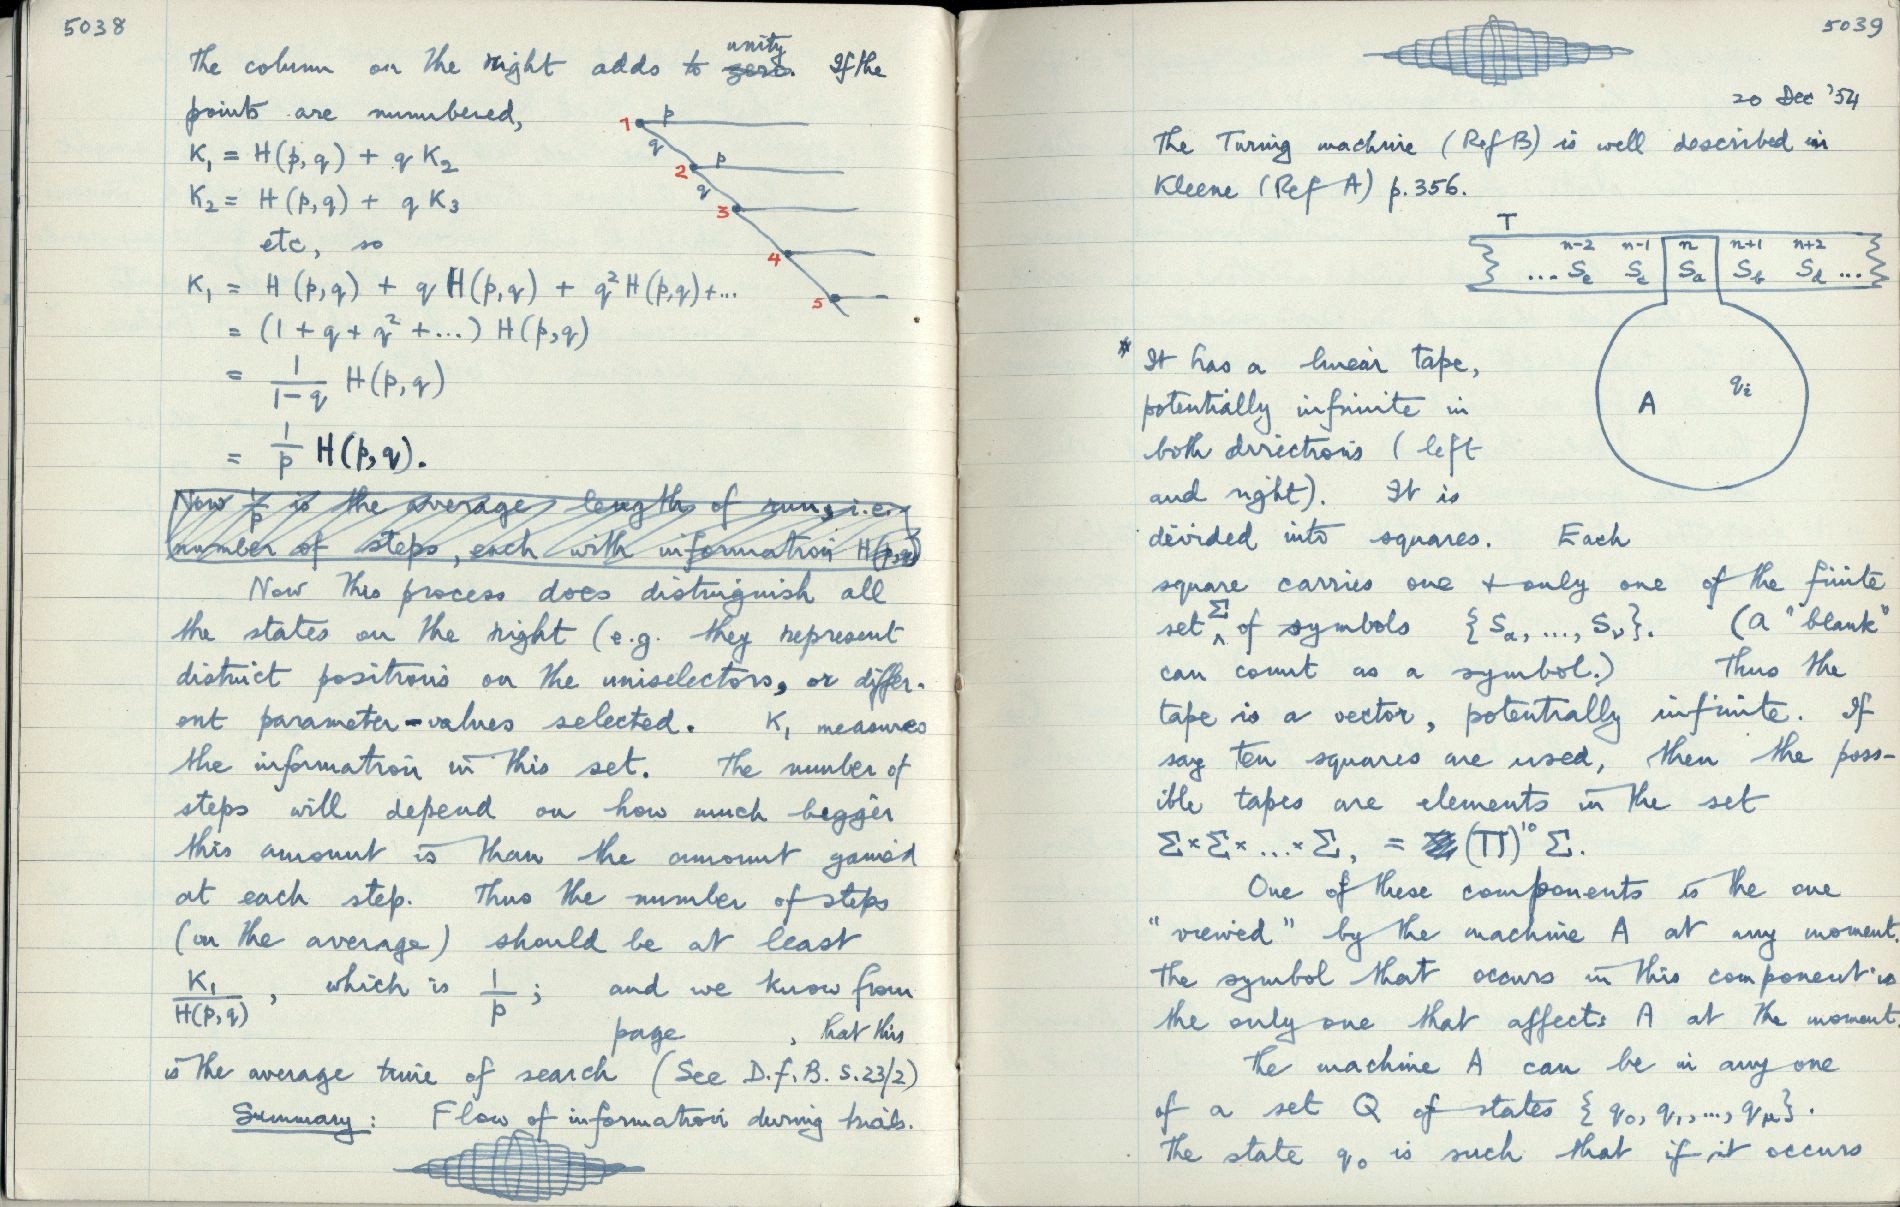 5038
The column on the right adds to zero. unity If the
points are numbered,
K₁ = H(p,q) + q K₂
K₂ = H(p,q) + q K₃
etc, so
K₁ = H(p,q) + q H(p,q) + q² H(p,q) + ...
= (1 + q + q² + ...) H(p,q)
= 1/(1-q) H(p,q)
= 1/p H(p,q).
1 p
q
2 p
q
3
4
5
Now 1/p is the average length of run, i.e.
number of steps, each with information H(p,q)
Now this process does distinguish all
the states on the right (e.g. they represent
distinct positions on the uniselectors, or differ-
ent parameter-values selected. K₁ measures
the information in this set. The number of
steps will depend on how much bigger
this amount is than the amount gained
at each step. Thus the number of steps
(on the average) should be at least
K₁/H(p,q), which is 1/p; and we know from
page , that this
is the average time of search (See D.f.B. S.23/2)
Summary: Flow of information during trials.
5039
20 Dec '54
The Turing machine (Ref B) is well described in
Kleene (Ref A) p.356.
T
n-2 n-1 n n+1 n+2
... Sₑ S꜀ Sₐ S_b S_d ...
A qᵢ
* It has a linear tape,
potentially infinite in
both directions (left
and right). It is
divided into squares. Each
square carries one + only one of the finite
set Σ of symbols {Sₐ, ..., Sᵥ}. (a "blank"
can count as a symbol.) Thus the
tape is a vector, potentially infinite. If
say ten squares are used, then the poss-
ible tapes are elements in the set
Σ×Σ×...×Σ, = (Π)¹⁰ Σ.
One of these components is the one
"viewed" by the machine A at any moment.
The symbol that occurs in this component is
the only one that affects A at the moment.
The machine A can be in any one
of a set Q of states {q₀, q₁, ..., q_μ}.
The state q₀ is such that if it occurs